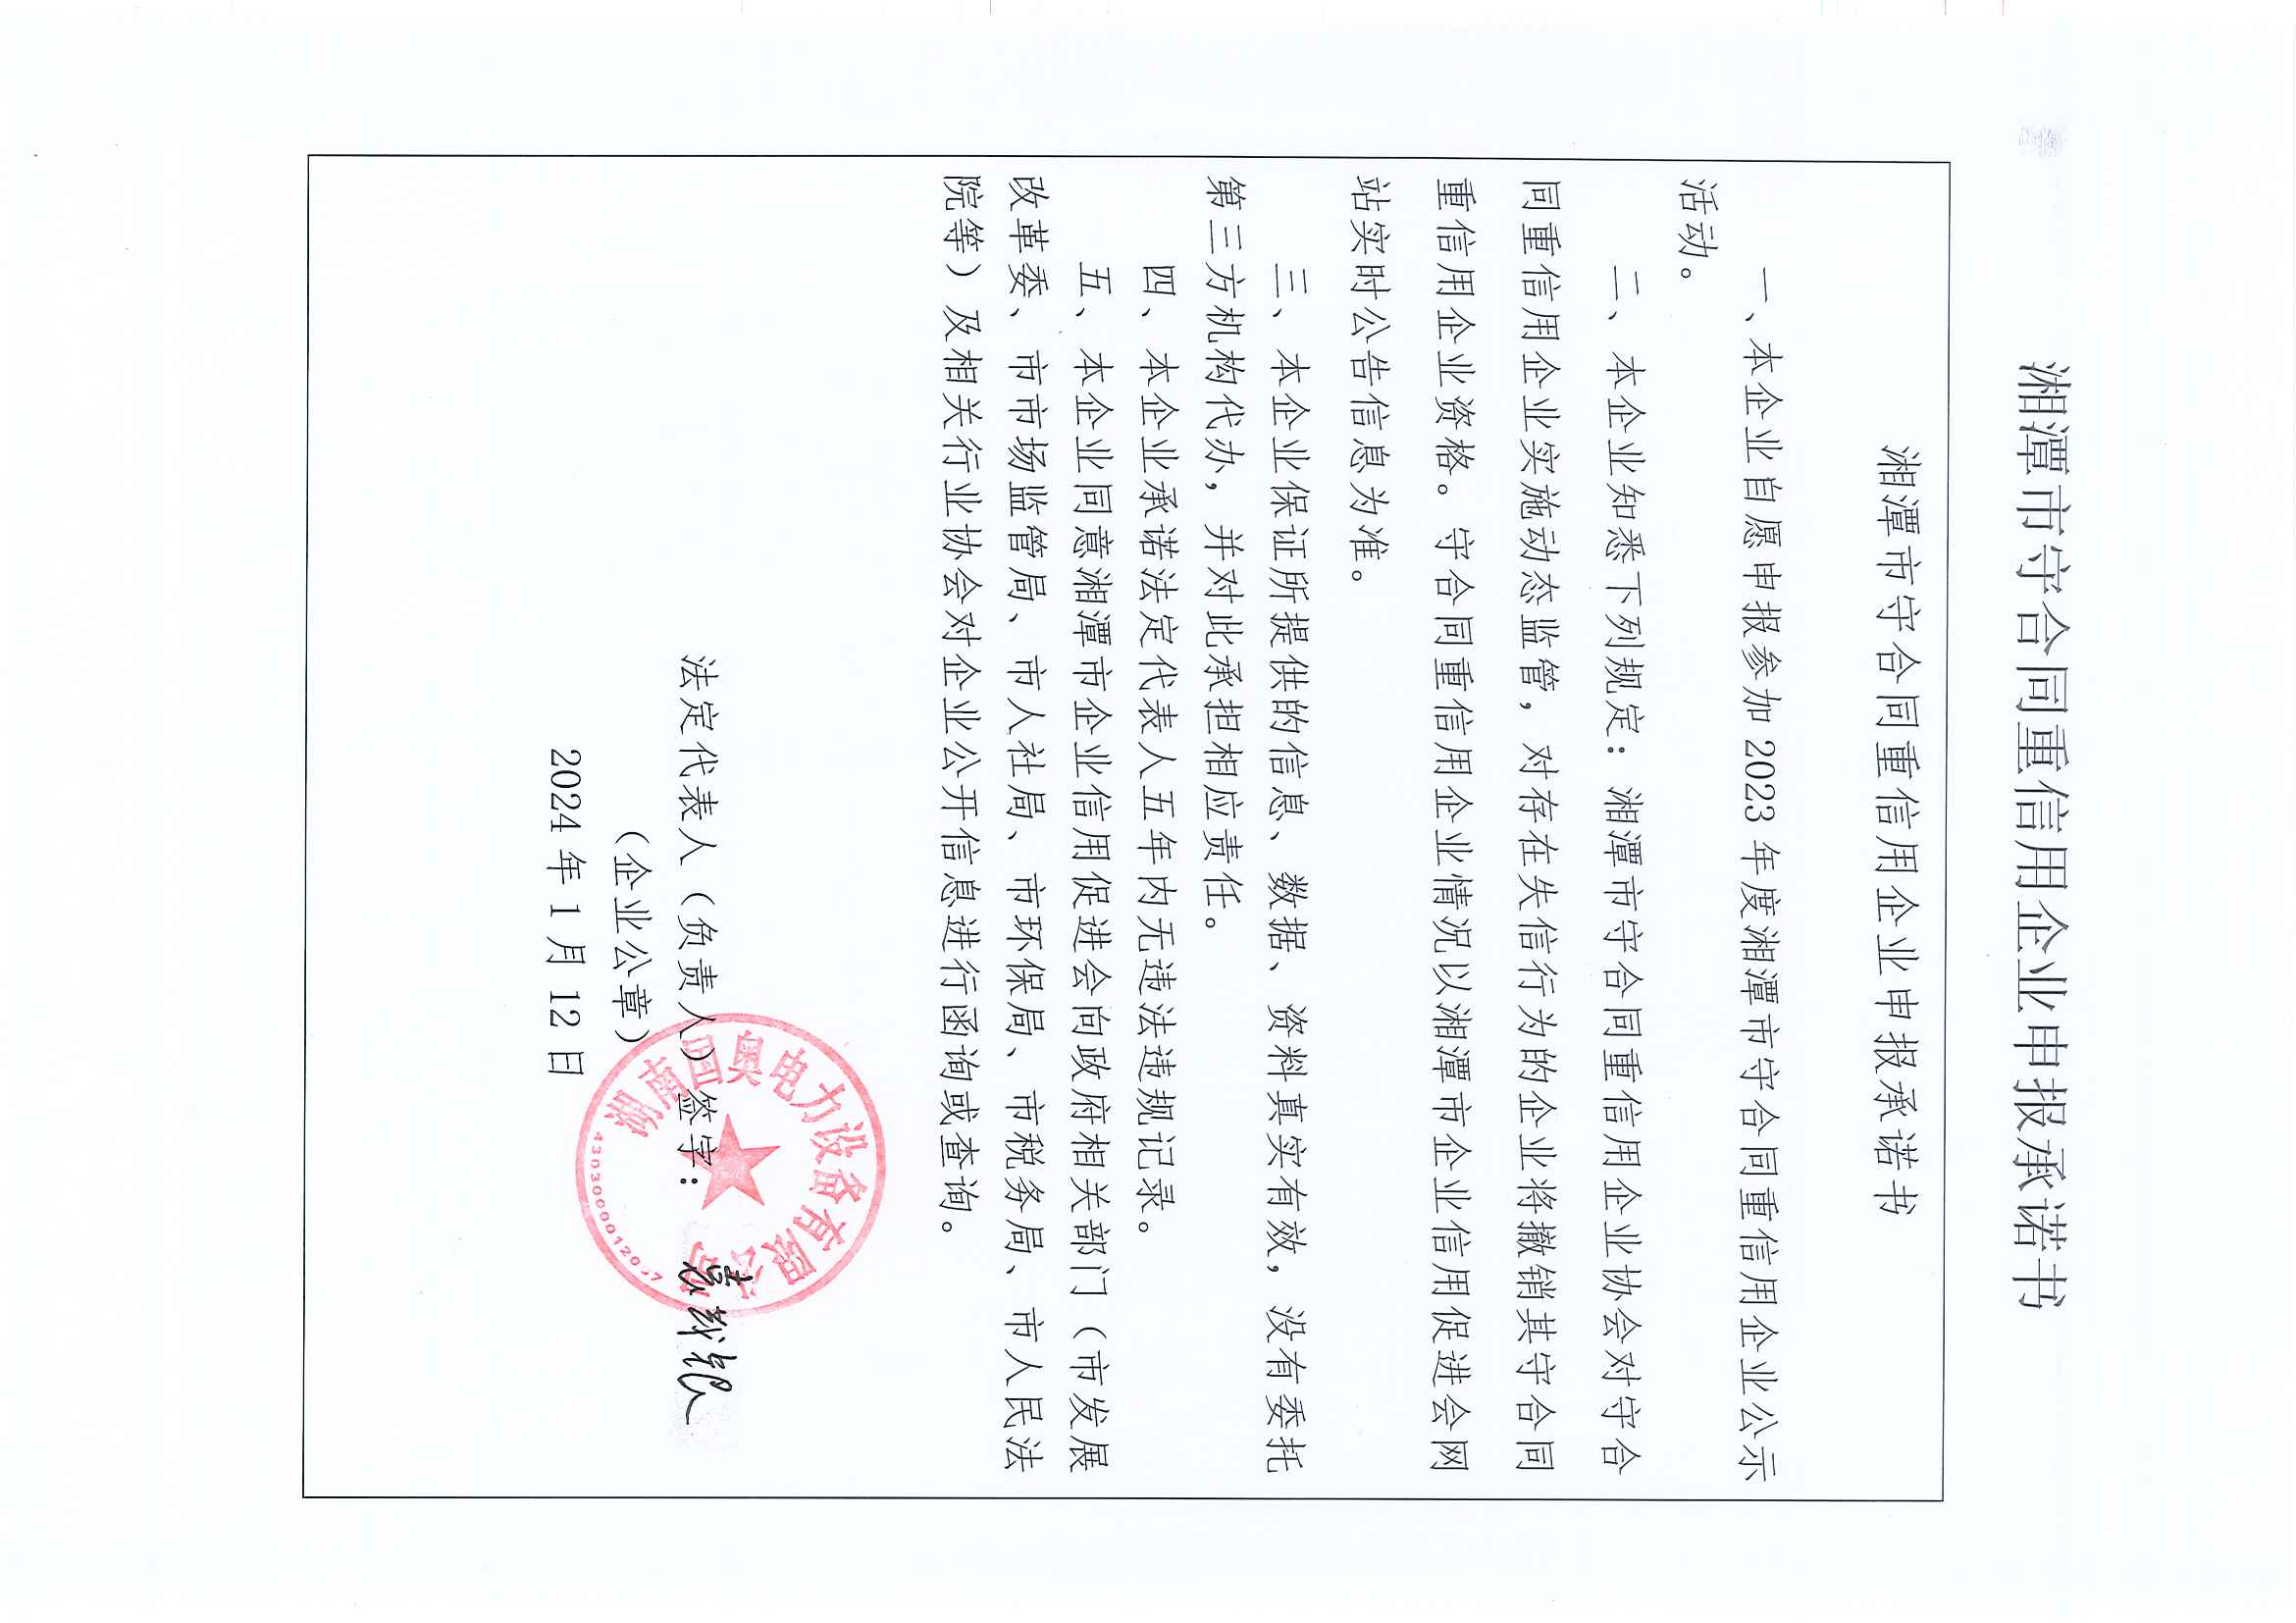 湘潭市守合同重信用企业申报承诺书
湘潭市守合同重信用企业申报承诺书
一、本企业自愿申报参加 2023 年度湘潭市守合同重信用企业公示
活动。
二、本企业知悉下列规定：湘潭市守合同重信用企业协会对守合
同重信用企业实施动态监管，对存在失信行为的企业将撤销其守合同
重信用企业资格。守合同重信用企业情况以湘潭市企业信用促进会网
站实时公告信息为准。
三、本企业保证所提供的信息、数据、资料真实有效，没有委托
第三方机构代办，并对此承担相应责任。
四、本企业承诺法定代表人五年内无违法违规记录。
五、本企业同意湘潭市企业信用促进会向政府相关部门（市发展
改革委、市市场监管局、市人社局、市环保局、市税务局、市人民法
院等）及相关行业协会对企业公开信息进行函询或查询。
法定代表人（负责人）签字：
（企业公章）
2024 年 1 月 12 日
湖南国奥电力设备有限公司